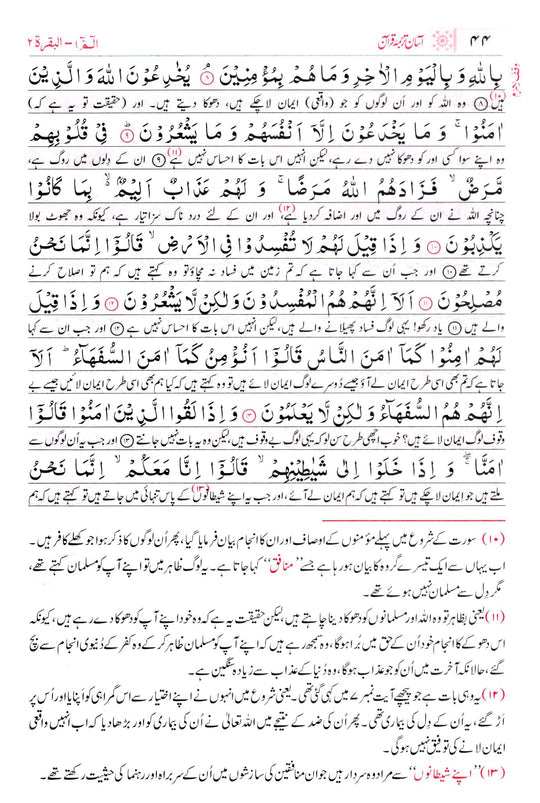 ۴۴ آسان ترجمۂ قرآن الٓمّٓ ۱ - البقرۃ ۲
بِاللّٰهِ وَ بِالْيَوْمِ الْاٰخِرِ وَمَا هُمْ بِمُؤْمِنِيْنَ ۘ ۸ يُخٰدِعُوْنَ اللّٰهَ وَ الَّذِيْنَ
ہیں(۱۰) ﴿۸﴾ وہ اللہ کو اور اُن لوگوں کو جو (واقعی) ایمان لاچکے ہیں، دھوکا دیتے ہیں۔ اور (حقیقت تو یہ ہے کہ)
اٰمَنُوْا ۚ وَ مَا يَخْدَعُوْنَ اِلَّاۤ اَنْفُسَهُمْ وَ مَا يَشْعُرُوْنَ ۹ فِيْ قُلُوْبِهِمْ
وہ اپنے سوا کسی اور کو دھوکا نہیں دے رہے، لیکن اُنہیں اس بات کا احساس نہیں ہے(۱۱) ﴿۹﴾ ان کے دِلوں میں روگ ہے،
مَّرَضٌ ۙ فَزَادَهُمُ اللّٰهُ مَرَضًا ۚ وَ لَهُمْ عَذَابٌ اَلِيْمٌۢ ۙ بِمَا كَانُوْا
چنانچہ اللہ نے ان کے روگ میں اور اضافہ کردیا ہے(۱۲)، اور ان کے لئے درد ناک سزا تیار ہے، کیونکہ وہ جھوٹ بولا
يَكْذِبُوْنَ ۱۰ وَ اِذَا قِيْلَ لَهُمْ لَا تُفْسِدُوْا فِي الْاَرْضِ ۙ قَالُوْۤا اِنَّمَا نَحْنُ
کرتے تھے ﴿۱۰﴾ اور جب اُن سے کہا جاتا ہے کہ تم زمین میں فساد نہ مچاؤ تو وہ کہتے ہیں کہ ہم تو اصلاح کرنے
مُصْلِحُوْنَ ۱۱ اَلَاۤ اِنَّهُمْ هُمُ الْمُفْسِدُوْنَ وَ لٰكِنْ لَّا يَشْعُرُوْنَ ۱۲ وَ اِذَا قِيْلَ
والے ہیں ﴿۱۱﴾ یاد رکھو! یہی لوگ فساد پھیلانے والے ہیں، لیکن انہیں اس بات کا احساس نہیں ہے ﴿۱۲﴾ اور جب ان سے کہا
لَهُمْ اٰمِنُوْا كَمَاۤ اٰمَنَ النَّاسُ قَالُوْۤا اَنُؤْمِنُ كَمَاۤ اٰمَنَ السُّفَهَآءُ ؕ اَلَاۤ
جاتا ہے کہ تم بھی اسی طرح ایمان لے آؤ جیسے دُوسرے لوگ ایمان لائے ہیں تو وہ کہتے ہیں کہ کیا ہم بھی اسی طرح ایمان لائیں جیسے بے
اِنَّهُمْ هُمُ السُّفَهَآءُ وَ لٰكِنْ لَّا يَعْلَمُوْنَ ۱۳ وَ اِذَا لَقُوا الَّذِيْنَ اٰمَنُوْا قَالُوْۤا
وقوف لوگ ایمان لائے ہیں؟ خوب اچھی طرح سن لو کہ یہی لوگ بے وقوف ہیں، لیکن وہ یہ بات نہیں جانتے ﴿۱۳﴾ اور جب یہ اُن لوگوں سے
اٰمَنَّا ۖۚ وَ اِذَا خَلَوْا اِلٰى شَيٰطِيْنِهِمْ ۙ قَالُوْۤا اِنَّا مَعَكُمْ ۙ اِنَّمَا نَحْنُ
ملتے ہیں جو ایمان لا چکے ہیں تو کہتے ہیں کہ ہم ایمان لے آئے، اور جب یہ اپنے شیطانوں(۱۳) کے پاس تنہائی میں جاتے ہیں تو کہتے ہیں کہ ہم
(۱۰) سورت کے شروع میں پہلے مؤمنوں کے اوصاف اور ان کا انجام بیان فرمایا گیا، پھر اُن لوگوں کا ذکر ہوا جو کھلے کافر ہیں۔
اب یہاں سے ایک تیسرے گروہ کا بیان ہورہا ہے جسے ’’منافق‘‘ کہا جاتا ہے۔ یہ لوگ ظاہر میں تو اپنے آپ کو مسلمان کہتے تھے،
مگر دِل سے مسلمان نہیں ہوئے تھے۔
(۱۱) یعنی بظاہر تو وہ اللہ اور مسلمانوں کو دھوکا دینا چاہتے ہیں، لیکن حقیقت یہ ہے کہ وہ خود اپنے آپ کو دھوکا دے رہے ہیں، کیونکہ
اس دھوکے کا انجام خود اُن کے حق میں بُرا ہوگا، وہ سمجھ رہے ہیں کہ اپنے آپ کو مسلمان ظاہر کرکے وہ کفر کے دُنیوی انجام سے بچ
گئے، حالانکہ آخرت میں اُن کو جو عذاب ہوگا، وہ دُنیا کے عذاب سے زیادہ سنگین ہے۔
(۱۲) یہ وہی بات ہے جو پیچھے آیت نمبر ۷ میں کہی گئی تھی۔ یعنی شروع میں انہوں نے اپنے اختیار سے اس گمراہی کو اپنایا اور اُس پر
اَڑ گئے، یہ اُن کے دِل کی بیماری تھی۔ پھر اُن کی ضد کے نتیجے میں اللہ تعالیٰ نے اُن کی بیماری کو اور بڑھا دیا کہ اب انہیں واقعی
ایمان لانے کی توفیق نہیں ہوگی۔
(۱۳) ’’اپنے شیطانوں‘‘ سے مراد وہ سردار ہیں جو ان منافقین کی سازشوں میں اُن کے سربراہ اور رہنما کی حیثیت رکھتے تھے۔